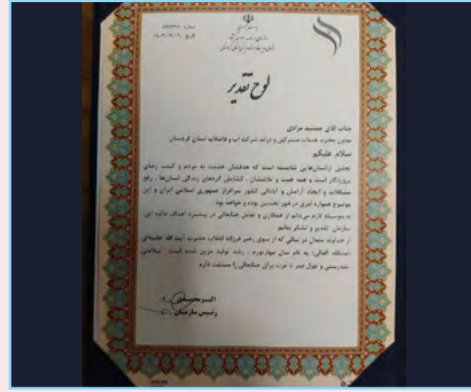 لوح تقدیر
جناب آقای جمشید مرادی
معاون محترم خدمات مشترکین و درآمد شرکت آب و فاضلاب استان کردستان
سلام علیکم
تجلیل از انسان‌هایی شایسته است که هدفشان خدمت به مردم و کسب رضای
پروردگار است و همه همت و تلاششان ، گشایش گره‌های زندگی انسان‌ها ، رفع
مشکلات و ایجاد آرامش و آبادانی کشور سرافراز جمهوری اسلامی ایران و این
موضوع همواره امری درخور تحسین بوده و خواهد بود.
بدینوسیله لازم می‌دانم از همکاری و تعامل جنابعالی در پیشبرد اهداف عالیه این
سازمان تقدیر و تشکر نمایم.
از خداوند متعال در سالی که از سوی رهبر فرزانه انقلاب حضرت آیت الله خامنه‌ای
(مدظله العالی) به نام سال مهار تورم ، رشد تولید مزین شده است ، سلامتی
تندرستی و طول عمر با عزت برای جنابعالی را مسئلت دارم.
رئیس سازمان